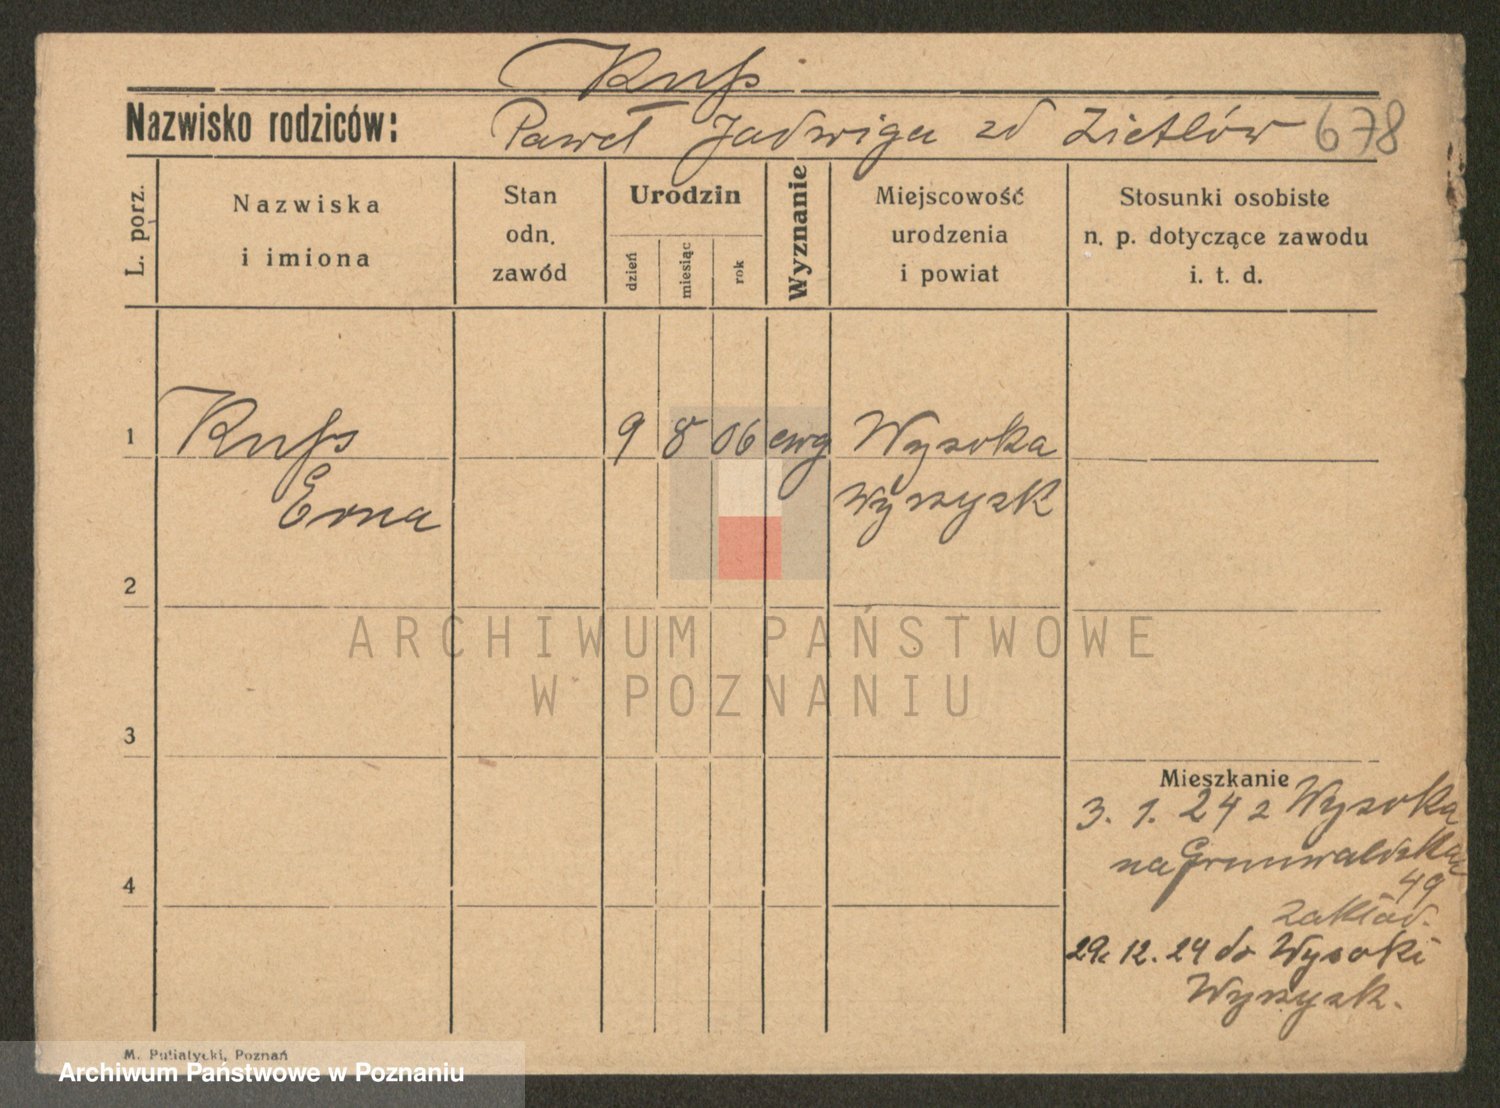 Kuß
Nazwisko rodziców: Paweł Jadwiga zd Zietlów 678
L. porz.
Nazwiska
i imiona
Stan
odn.
zawód
Urodzin
dzień
miesiąc
rok
Wyznanie
Miejscowość
urodzenia
i powiat
Stosunki osobiste
n. p. dotyczące zawodu
i. t. d.
1 Kuß 9 8 06 ewg Wysoka
Erna Wyrzysk
2
3
4
Mieszkanie
3. 1. 24 z Wysoka
na Grunwaldzka
49
zakład.
29. 12. 24 do Wysoki
Wyrzysk.
M. Putiatycki, Poznań
ARCHIWUM PAŃSTWOWE
W POZNANIU
Archiwum Państwowe w Poznaniu